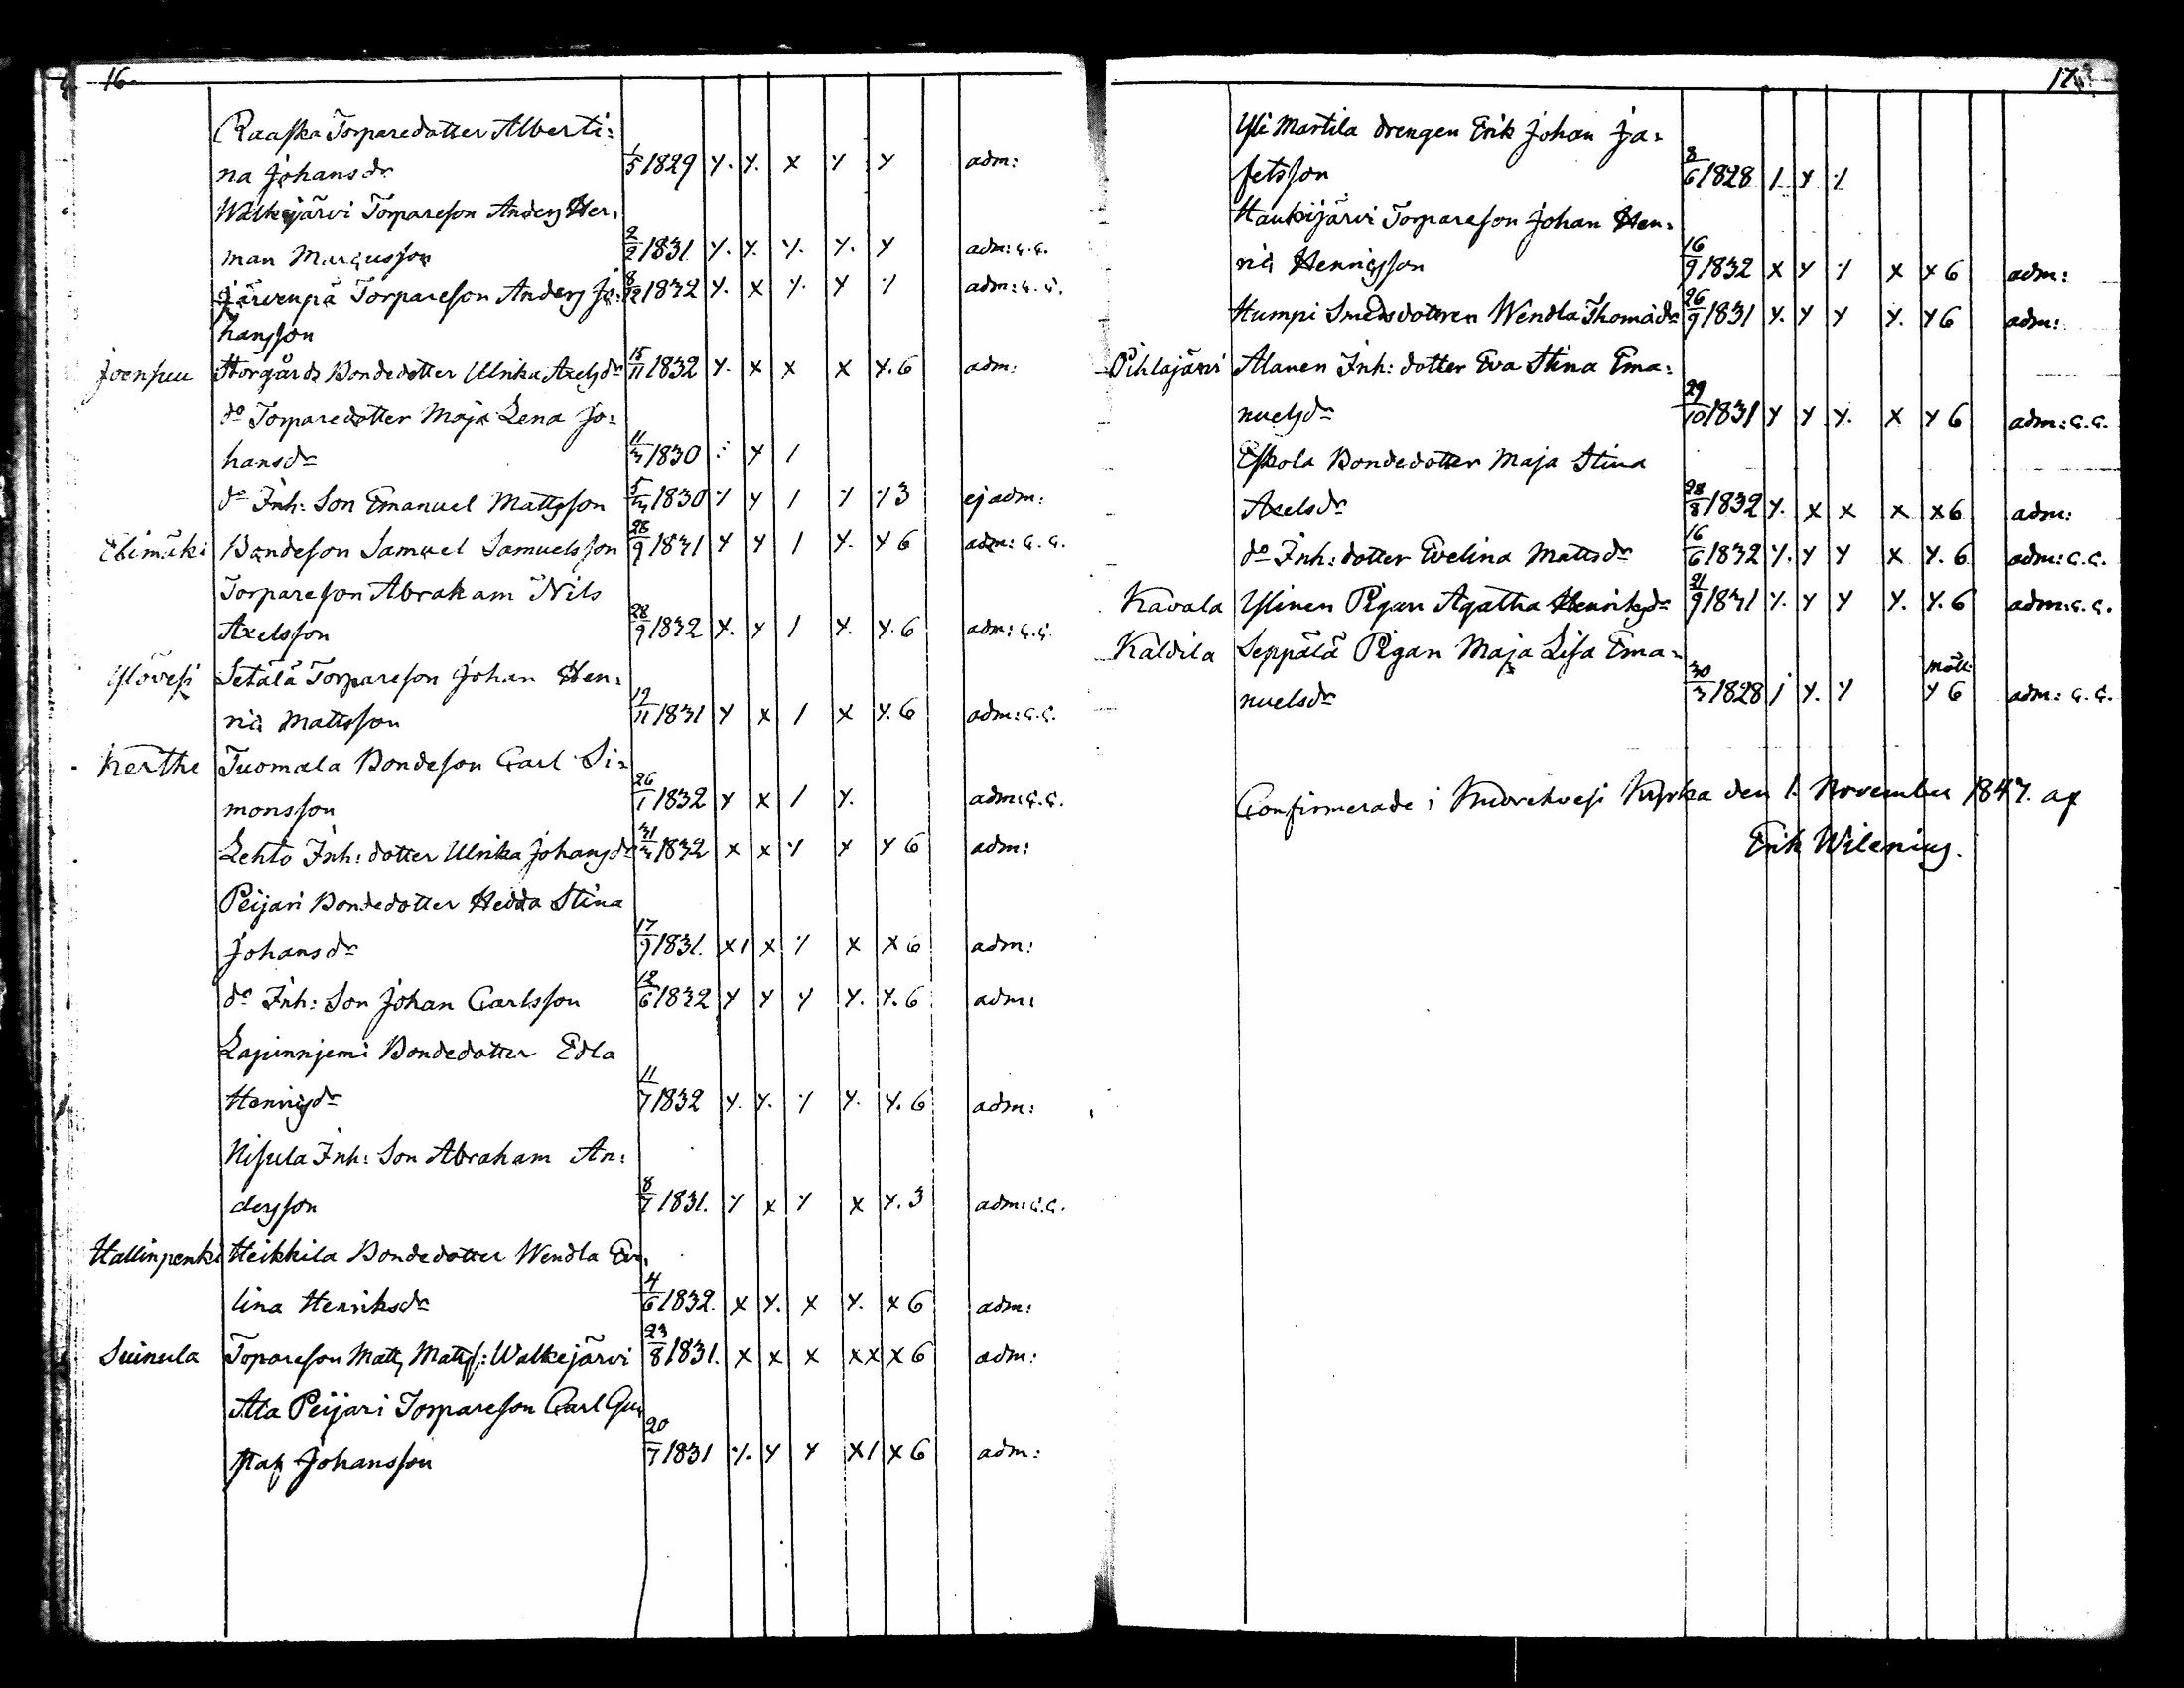 16
Raaska Torparedotter Alberti:
na Johansdr 1/5 1829 adm:
Walkejärvi Torpareson Anders Her:
man Marcusson 2/2 1831. adm: c.c.
Järvenpä Torpareson Anders Jo: 8/12 1832 adm: c.c.
hansson
Joensuu Storgårds Bondedotter Ulrika Axelsdr 15/11 1832 x x x y.6 adm:
do Torparedotter Maja Lena Jo:
hansdr 11/3 1830
do Inh: Son Emanuel Mattsson 5/3 1830 3 ej adm:
Elimäki Bondeson Samuel Samuelsson 28/9 1831 6 adm: c.c.
Torpareson Abraham Nils
Axelsson 28/9 1832 6 adm: c.c.
Ylövesi Setälä Torpareson Johan Hen:
ric Mattsson 12/11 1831 6 adm: c.c.
Kerthe Tuomala Bondeson Carl Si:
monsson 26/1 1832 adm: c.c.
Lehto Inh: dotter Ulrika Johansdr 31/3 1832 x x 6 adm:
Peijari Bondedotter Hedda Stina
Johansdr 17/9 1831. x1 x x x 6 adm:
do Inh: Son Johan Carlsson 12/6 1832 6 adm:
Lapinnjemi Bondedotter Edla
Henricsdr 11/7 1832 6 adm:
Nisula Inh: Son Abraham An:
dersson 8/7 1831. x x 3 adm: c.c.
Hallinpenki Heikkila Bondedotter Wendla Eve:
lina Henriksdr 4/6 1832. x x x 6 adm:
Suinula Topareson Matts Matts: Walkejärvi 23/8 1831. x x x xx x 6 adm:
Ala Peijari Torpareson Carl Gu:
staf Johansson 20/7 1831 x1 x 6 adm:
17.
Yli Martila drengen Erik Johan Ja:
fetsson 8/6 1828
Haukijärvi Torpareson Johan Hen:
ric Henricsson 16/9 1832 x x x 6 adm:
Humpi Smedsdottren Wendla Thomasdr 26/9 1831 6 adm:
Pihlajärvi Alanen Inh: dotter Eva Stina Ema:
nuelsdr 29/10 1831 x 6 adm: c.c.
Eskola Bondedotter Maja Stina
Axelsdr 28/8 1832 x x x x 6 adm:
do Inh: dotter Evelina Mattsdr 16/6 1832 x 6 adm: c.c.
Kavala Ylinen Pigan Agatha Henriksdr 21/9 1831 6 adm: c.c.
Kaldila Seppälä Pigan Maja Lisa Ema:
nuelsdr 30/3 1828 6 adm: c.c.
Confirmerade i Kuorehvesi Kyrka den 1. November 1847. af
Erik Wilenius.